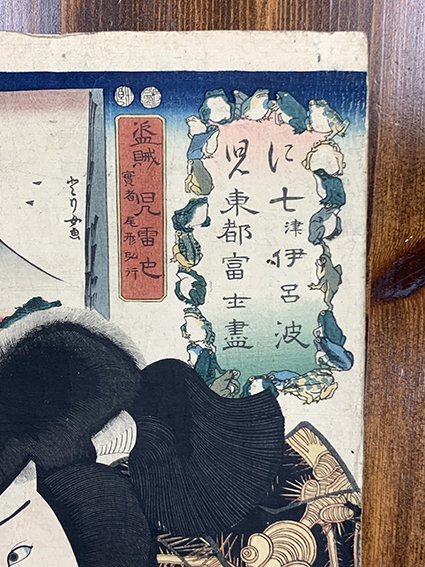 に七津伊呂波
児東都富士盡
盗賊 児雷也
實者 尾形弘行
とり女画